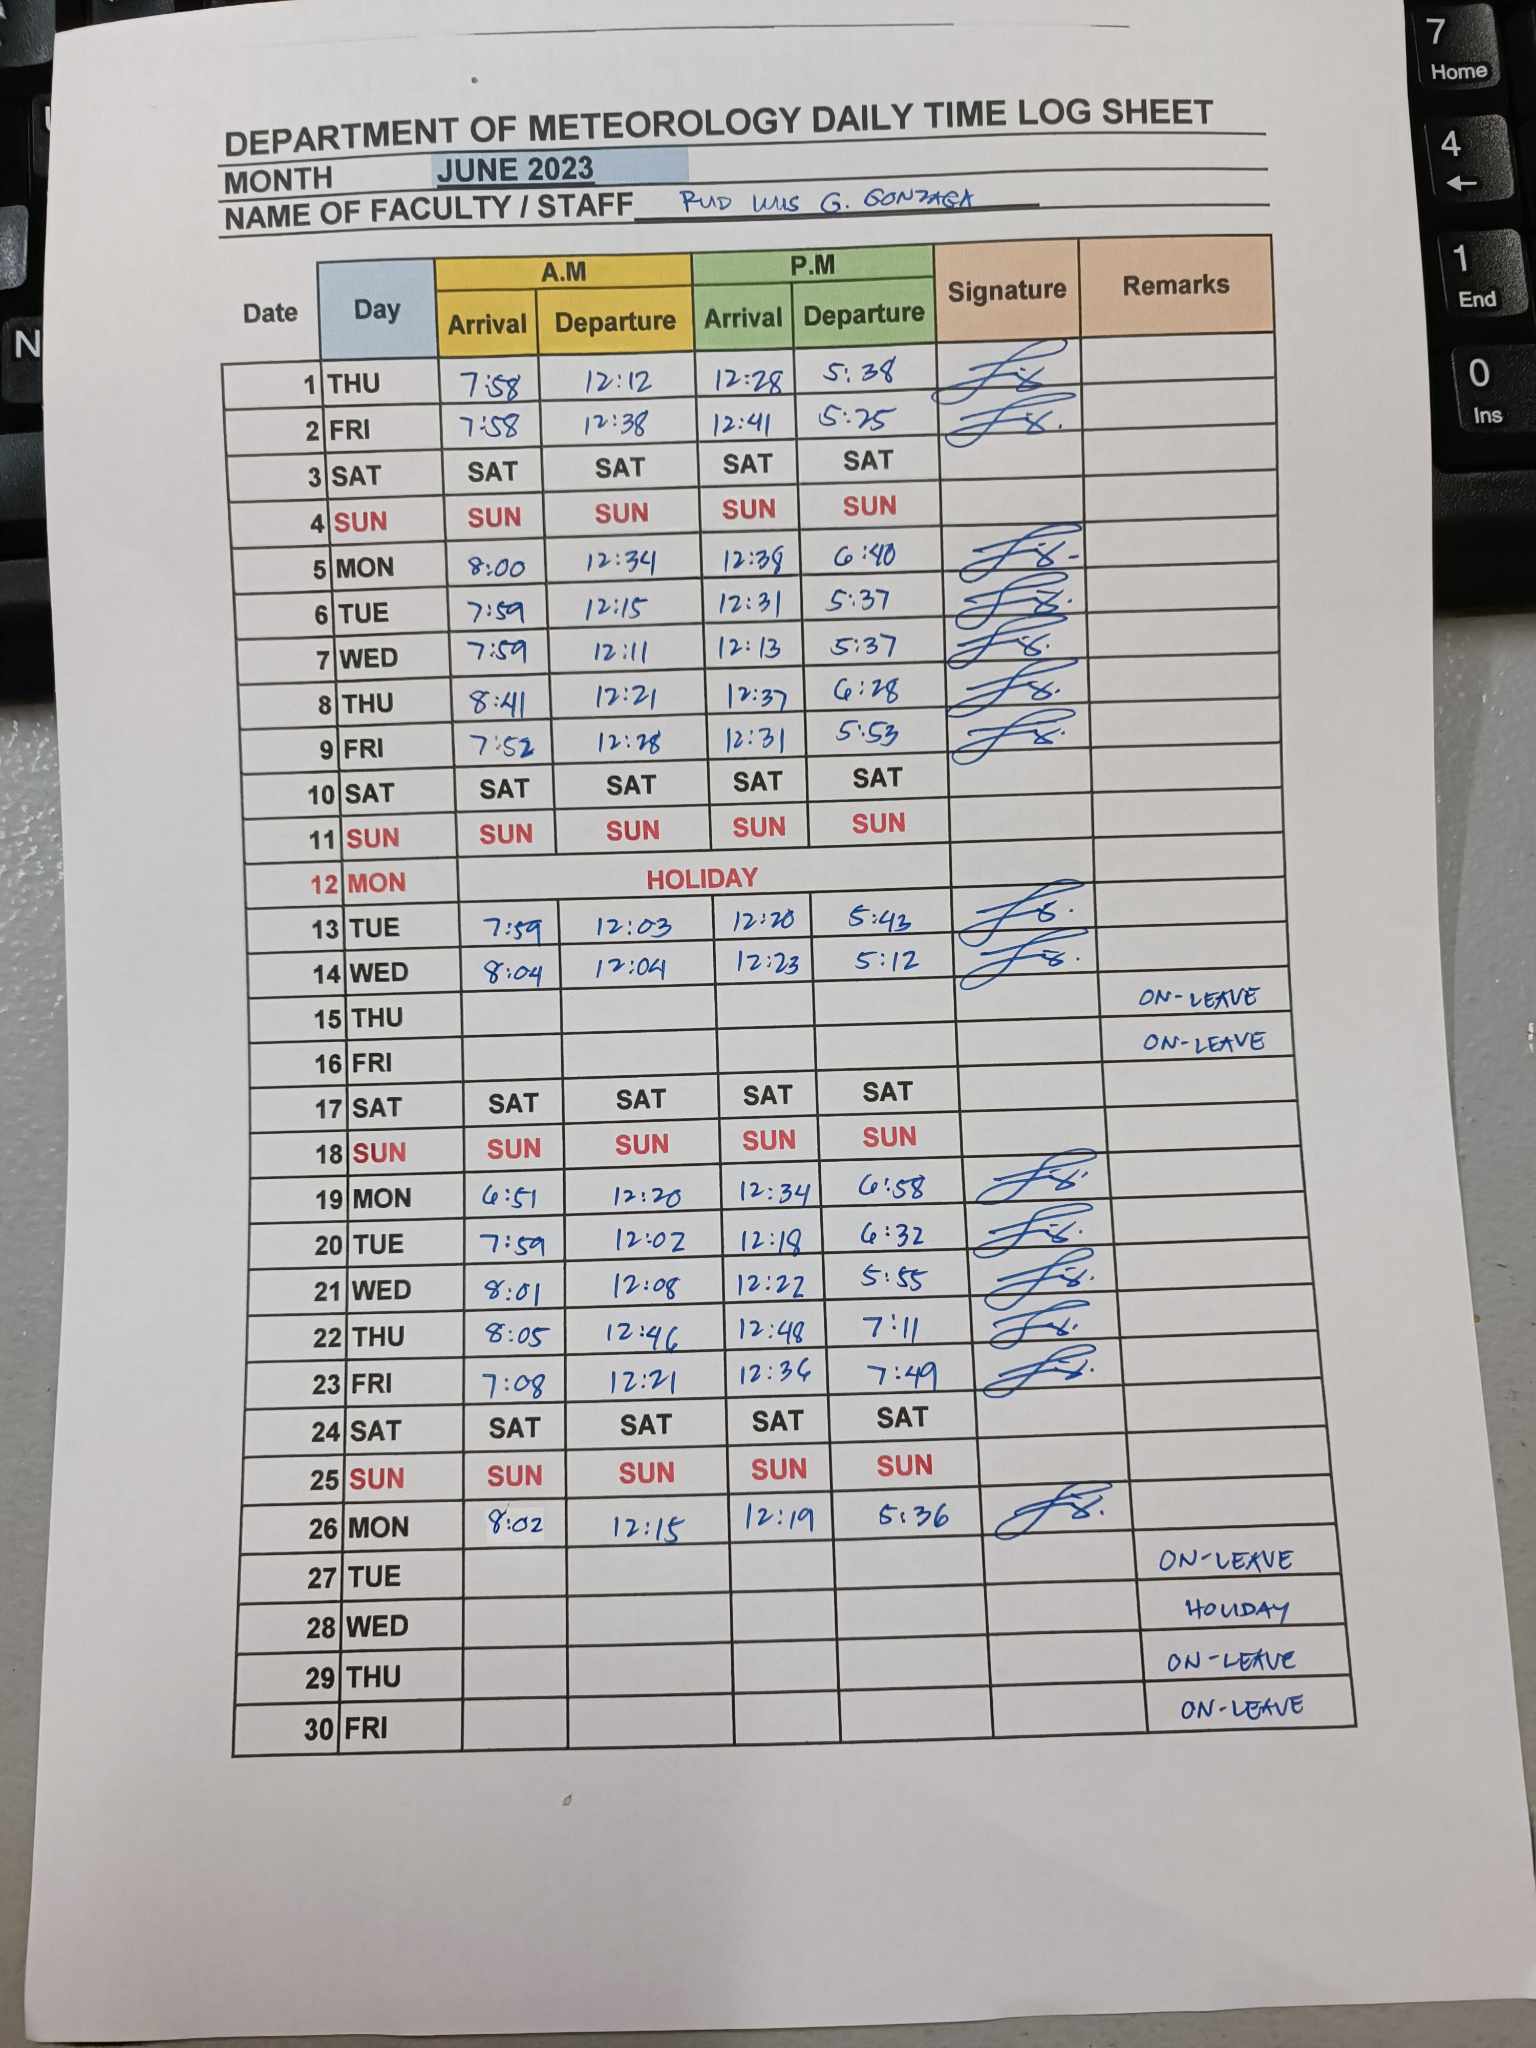 DEPARTMENT OF METEOROLOGY DAILY TIME LOG SHEET
MONTH JUNE 2023
NAME OF FACULTY / STAFF LUIS G. GONZAGA
A.M P.M
Date Day Arrival Departure Arrival Departure Signature Remarks
1 THU 7:58 12:12 12:28 5:38
2 FRI 7:58 12:38 12:41 5:25
3 SAT SAT SAT SAT SAT
4 SUN SUN SUN SUN SUN
5 MON 8:00 12:34 12:38 6:40
6 TUE 7:59 12:15 12:31 5:37
7 WED 7:59 12:11 12:13 5:37
8 THU 8:41 12:21 12:37 6:28
9 FRI 7:52 12:28 12:31 5:53
10 SAT SAT SAT SAT SAT
11 SUN SUN SUN SUN SUN
12 MON HOLIDAY
13 TUE 7:59 12:03 12:20 5:43
14 WED 8:04 12:04 12:23 5:12
15 THU ON-LEAVE
16 FRI ON-LEAVE
17 SAT SAT SAT SAT SAT
18 SUN SUN SUN SUN SUN
19 MON 6:51 12:20 12:34 6:58
20 TUE 7:59 12:02 12:18 6:32
21 WED 8:01 12:08 12:22 5:55
22 THU 8:05 12:46 12:48 7:11
23 FRI 7:08 12:21 12:36 7:49
24 SAT SAT SAT SAT SAT
25 SUN SUN SUN SUN SUN
26 MON 8:02 12:15 12:19 5:36
27 TUE ON-LEAVE
28 WED HOLIDAY
29 THU ON-LEAVE
30 FRI ON-LEAVE
7
Home
4
←
1
End
0
Ins
N